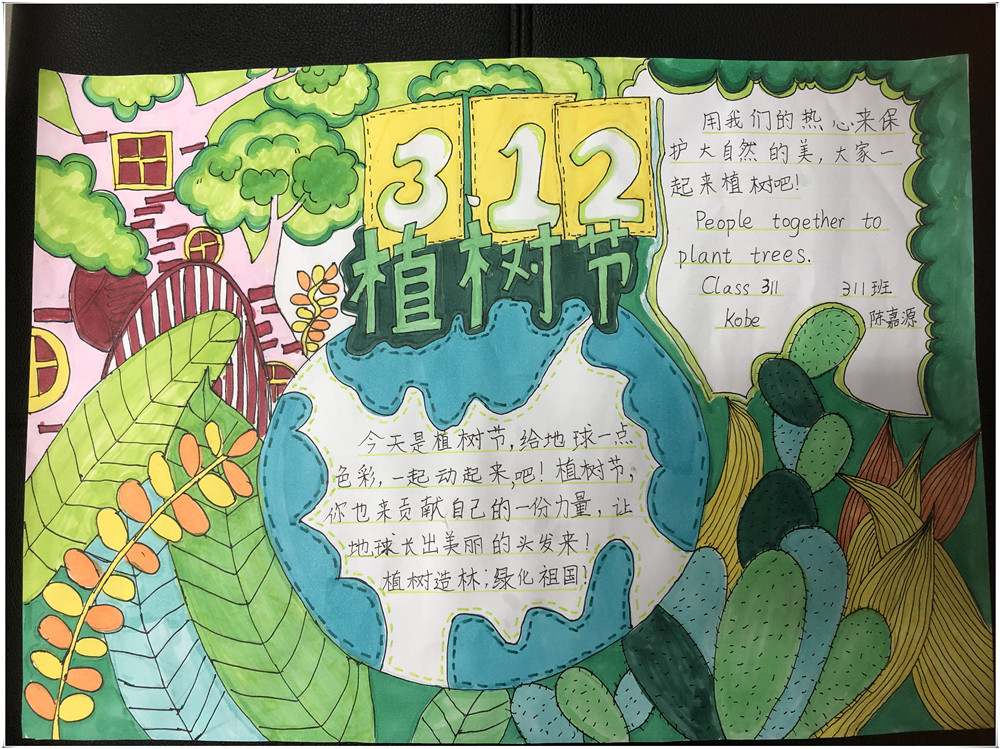 3.12
植树节
用我们的热心来保
护大自然的美,大家一
起来植树吧!
People together to
plant trees.
Class 311 311班
Kobe 陈嘉源
今天是植树节,给地球一点
色彩,一起动起来吧!植树节,
你也来贡献自己的一份力量,让
地球长出美丽的头发来!
植树造林;绿化祖国!